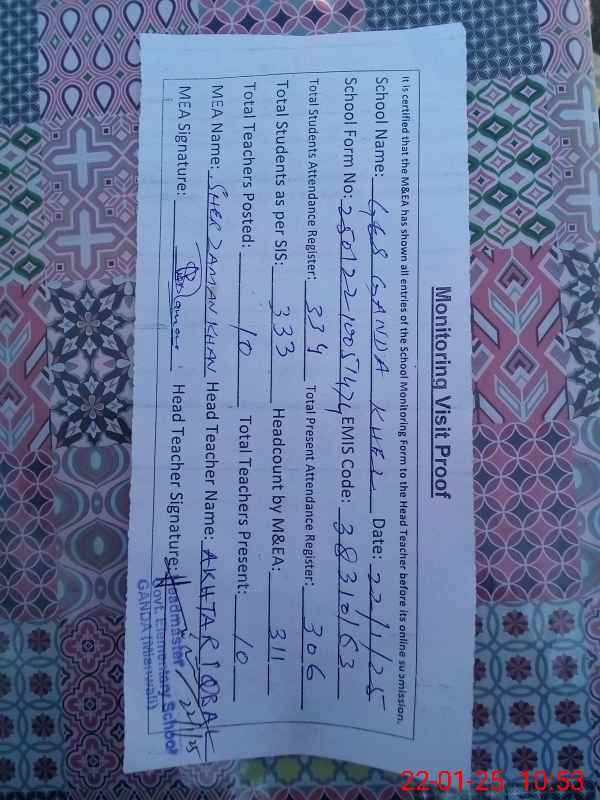 Monitoring Visit Proof
It is certified that the M&EA has shown all entries of the School Monitoring Form to the Head Teacher before its online submission.
School Name: GES GANDA KHEL Date: 22/1/25
School Form No: 25012210051424 EMIS Code: 38310163
Total Students Attendance Register: 334 Total Present Attendance Register: 306
Total Students as per SIS: 333 Headcount by M&EA: 311
Total Teachers Posted: 10 Total Teachers Present: 10
MEA Name: SHER ZAMAN KHAN Head Teacher Name: AKHTAR IQBAL
MEA Signature: Head Teacher Signature: 22/1/25
Headmaster
Govt. Elementary School
GANDA (Mianwali)
22-01-25 10:53